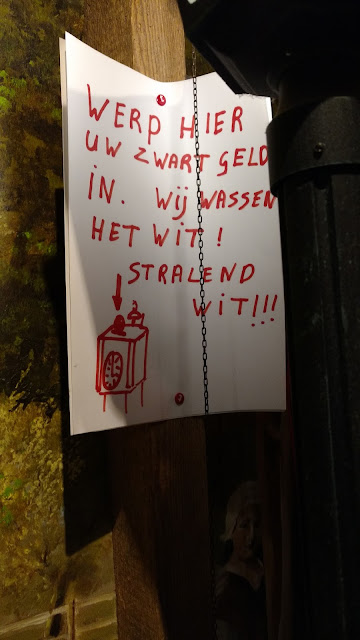 WERP HIER
UW ZWART GELD
IN. Wij WASSEN
HET WIT!
STRALEND
WiT!!!